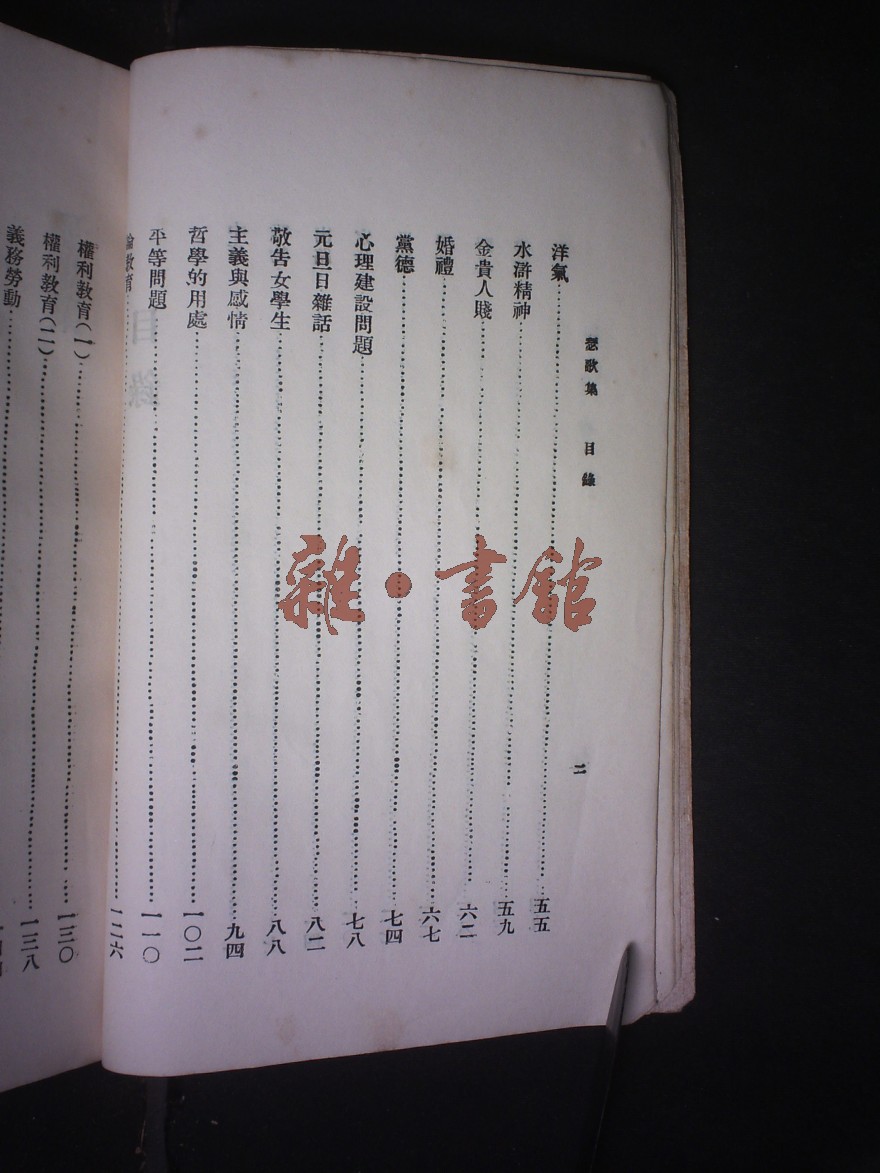 悲歌集　目錄
二
洋氣……五五
水滸精神……五九
金貴人賤……六二
婚禮……六七
黨德……七四
心理建設問題……七八
元旦日雜話……八二
敬告女學生……八八
主義與感情……九四
哲學的用處……一〇二
平等問題……一一〇
論敎育……一二六
權利敎育(一)……一三〇
權利敎育(二)……一三八
義務勞動……
目錄
雜·書館